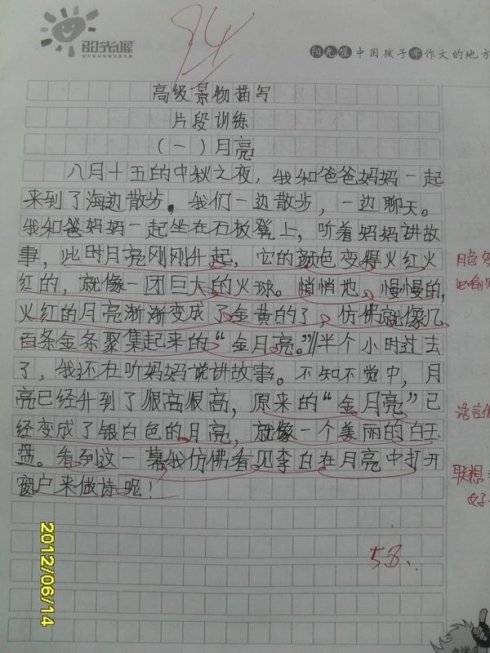 阳光喔
94
阳光喔 中国孩子学作文的地方
高级景物描写
片段训练
(一)月亮
八月十五的中秋之夜，我和爸爸妈妈一起
来到了海边散步。我们一边散步，一边聊天。
我和爸妈妈一起坐在石板凳上，听着妈妈讲故
事，此时月亮刚刚升起，它的颜色变得火红火
红的，就像一团巨大的火球。悄悄地，慢慢的，
火红的月亮渐渐变成了金黄的了，仿佛就像几
百条金条聚集起来的“金月亮。”半个小时过去
了，我还在听妈妈说讲故事。不知不觉中，月
亮已经升到了很高很高，原来的“金月亮”已
经变成了银白色的月亮，就像一个美丽的白玉
盘。看到这一幕我仿佛看见李白在月亮中打开
窗户来做诗呢！
月色
语言
联想
好
58
2012/06/14